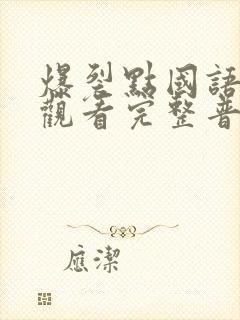 爆裂點國語
觀看完整普
應潔